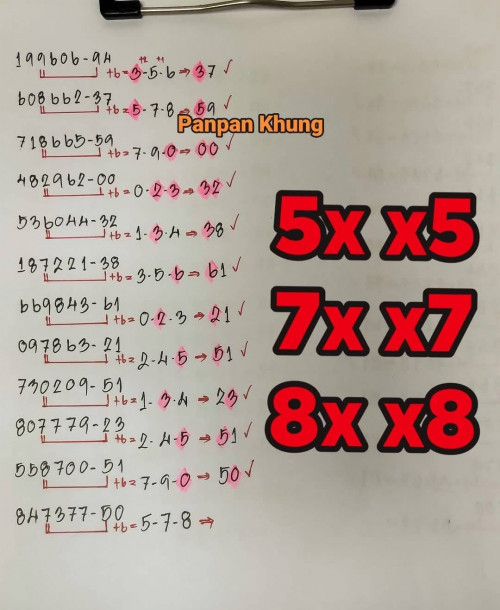 199606-94
+2 +1
+6=3-5-6⇒37✓
608662-37
+6=5-7-8⇒59✓
Panpan Khung
718665-59
+6=7-9-0⇒00✓
482962-00
+6=0-2-3⇒32✓
536044-32
+6=1-3-4⇒38✓
5x x5
187221-38
+6=3-5-6⇒61✓
669843-61
+6=0-2-3⇒21✓
7x x7
097863-21
+6=2-4-5⇒51✓
730209-51
+6=1-3-4⇒23✓
807779-23
+6=2-4-5⇒51✓
8x x8
558700-51
+6=7-9-0→50✓
847377-50
+6=5-7-8⇒